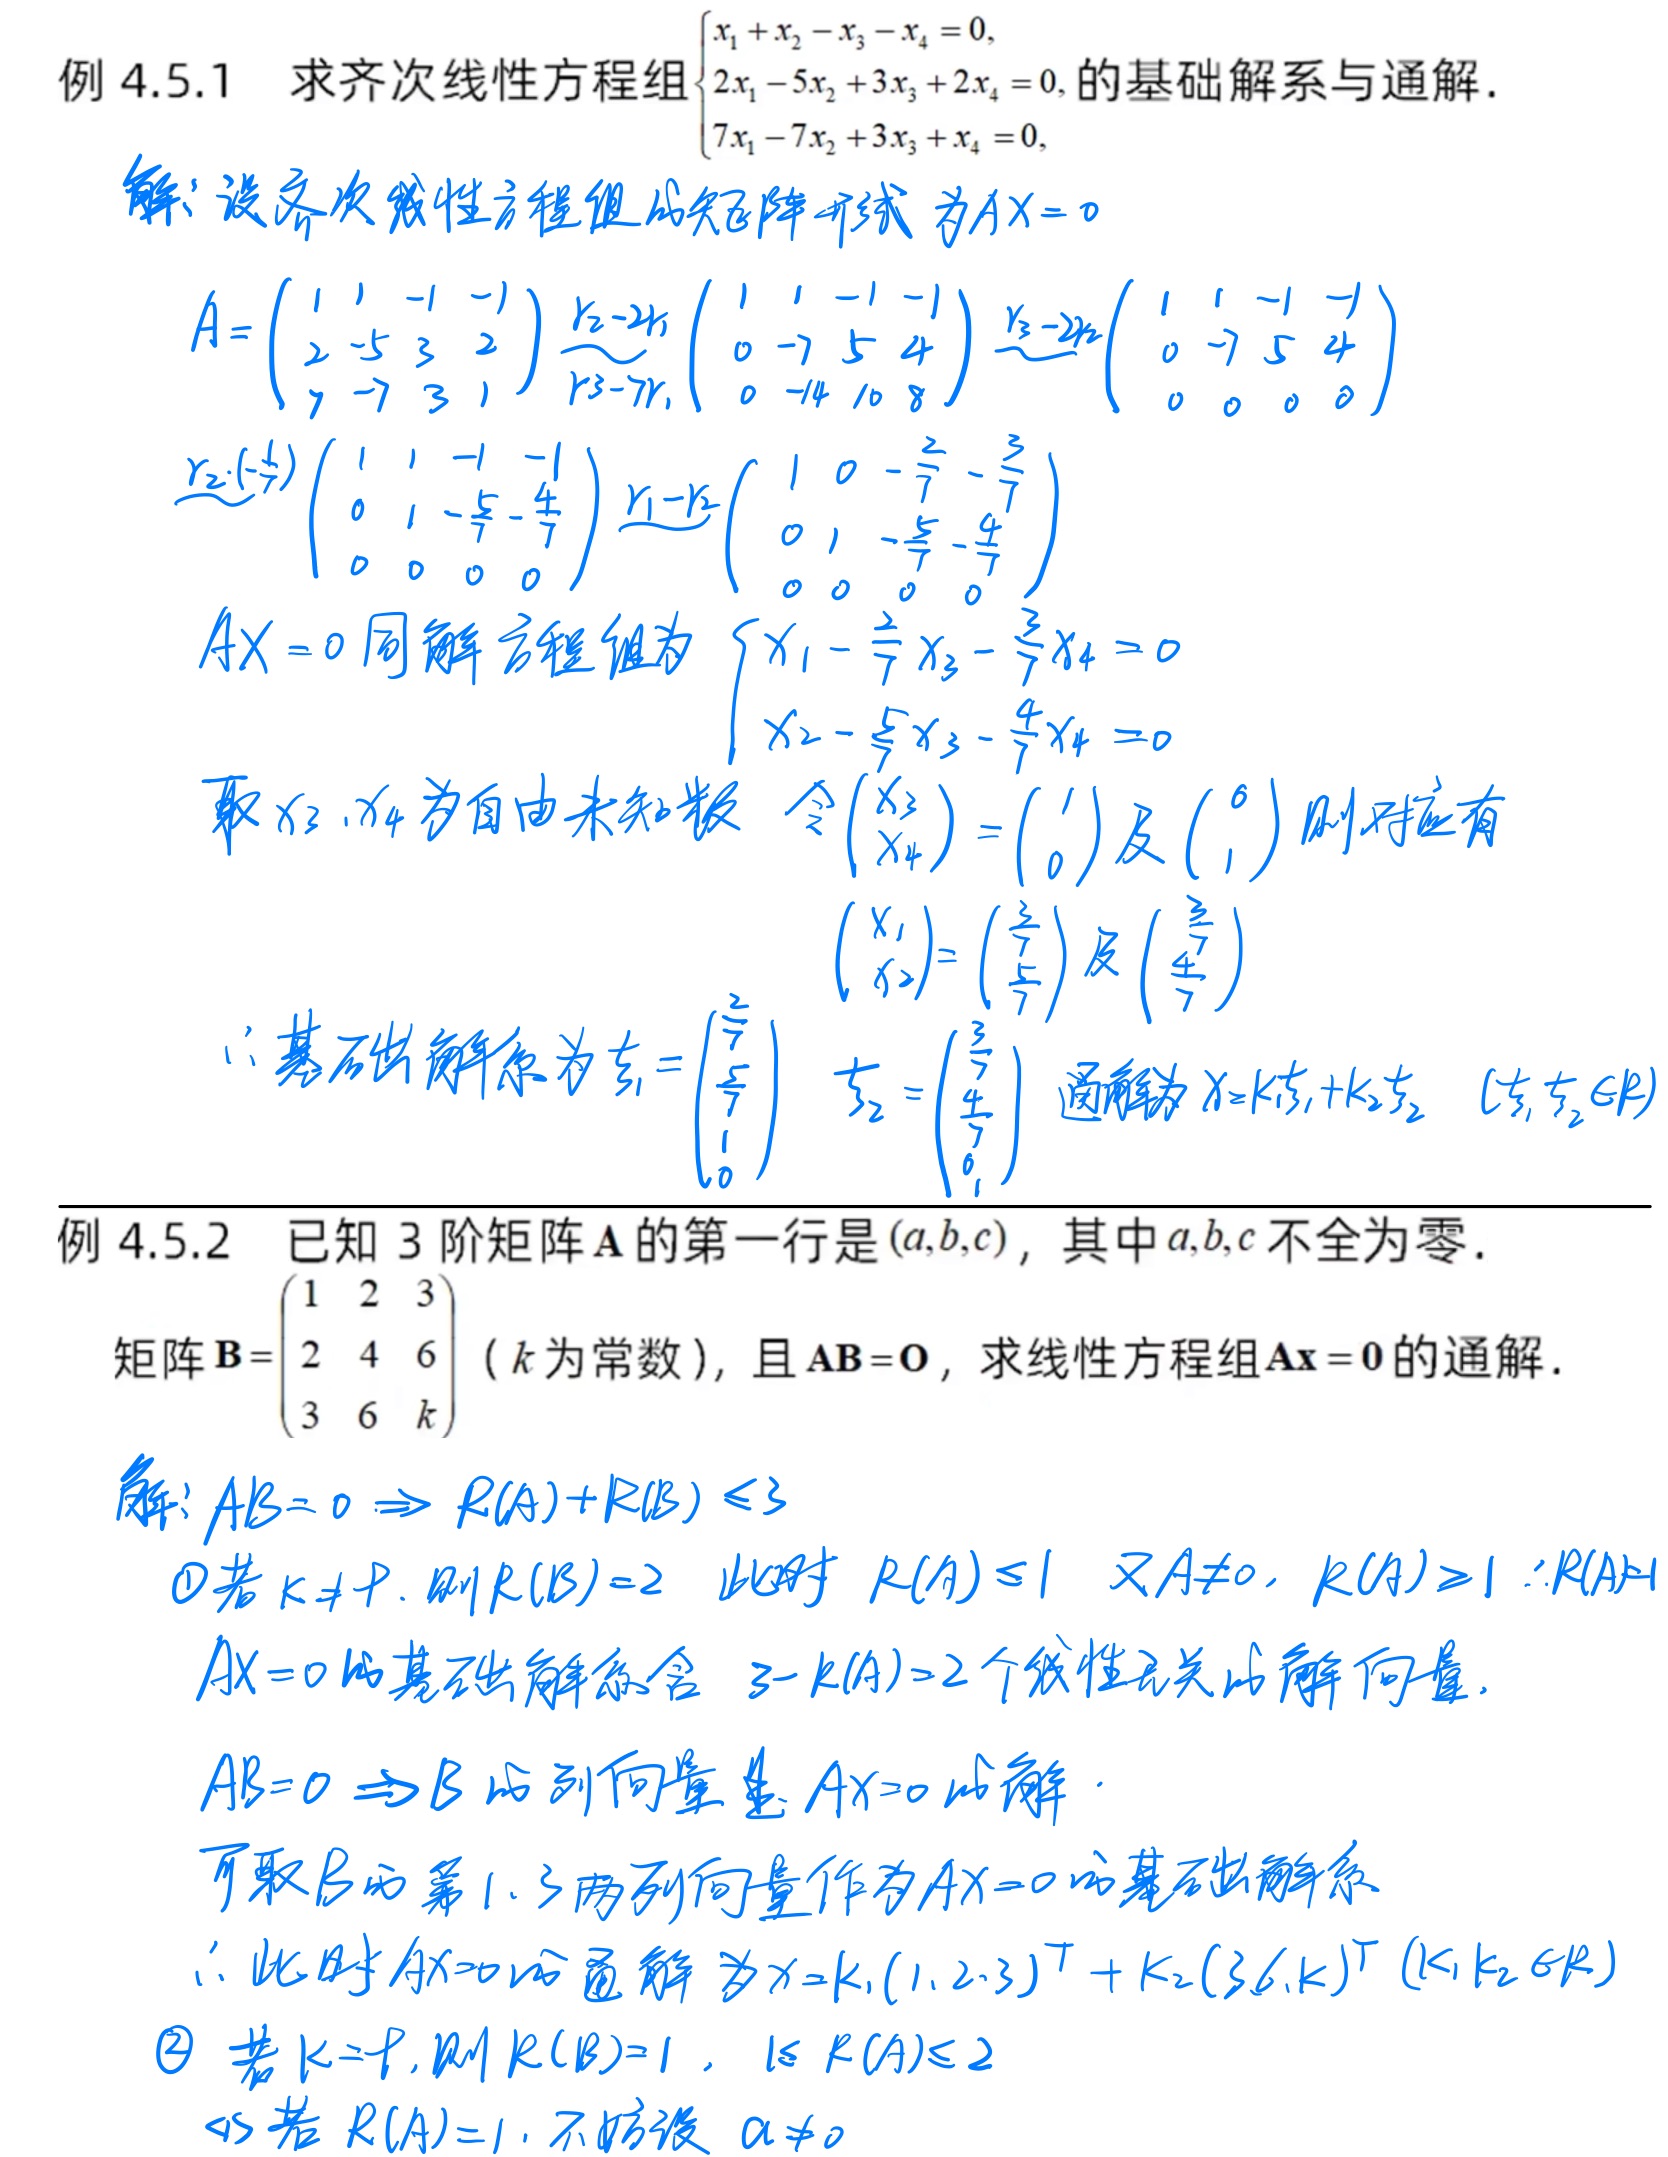 例 4.5.1 求齐次线性方程组 { x₁ + x₂ − x₃ − x₄ = 0, 的基础解系与通解.
2x₁ − 5x₂ + 3x₃ + 2x₄ = 0,
7x₁ − 7x₂ + 3x₃ + x₄ = 0,
解: 设齐次线性方程组的矩阵形式为AX=0
A = ( 1 1 -1 -1 ; 2 -5 3 2 ; 7 -7 3 1 ) r₂-2r₁ r3-7r₁ ( 1 1 -1 -1 ; 0 -7 5 4 ; 0 -14 10 8 ) r₃-2r₂ ( 1 1 -1 -1 ; 0 -7 5 4 ; 0 0 0 0 )
r₂·(-1/7) ( 1 1 -1 -1 ; 0 1 -5/7 -4/7 ; 0 0 0 0 ) r₁-r₂ ( 1 0 -2/7 -3/7 ; 0 1 -5/7 -4/7 ; 0 0 0 0 )
AX=0同解方程组为 { x₁ - 2/7 x₃ - 3/7 x₄ = 0
x₂ - 5/7 x₃ - 4/7 x₄ = 0
取x₃、x₄为自由未知数 令 ( x₃ ; x₄ ) = ( 1 ; 0 ) 及 ( 0 ; 1 ) 则对应有
( x₁ ; x₂ ) = ( 2/7 ; 5/7 ) 及 ( 3/7 ; 4/7 )
∴基础解系为ξ₁ = ( 2/7 ; 5/7 ; 1 ; 0 ) ξ₂ = ( 3/7 ; 4/7 ; 0 ; 1 ) 通解为 x=k₁ξ₁+k₂ξ₂ (ξ₁ ξ₂∈R)
例 4.5.2 已知 3 阶矩阵 A 的第一行是 (a,b,c), 其中 a,b,c 不全为零.
矩阵 B = ( 1 2 3 ; 2 4 6 ; 3 6 k ) ( k 为常数), 且 AB = O, 求线性方程组 Ax = 0 的通解.
解: AB=0 ⇒ R(A)+R(B) ≤3
①若 k≠9. 则R(B)=2 此时 R(A)≤1 又A≠0, R(A)≥1 ∴R(A)=1
AX=0的基础解系含 3-R(A)=2个线性无关的解向量.
AB=0 ⇒B的列向量是AX=0的解.
可取B的第1、3两列向量作为AX=0的基础解系
∴此时AX=0的通解为x=k₁(1,2,3)ᵀ + k₂(3,6,k)ᵀ (k₁ k₂∈R)
② 若k=9,则R(B)=1, 1≤R(A)≤2
<1>若R(A)=1. 不妨设 a≠0